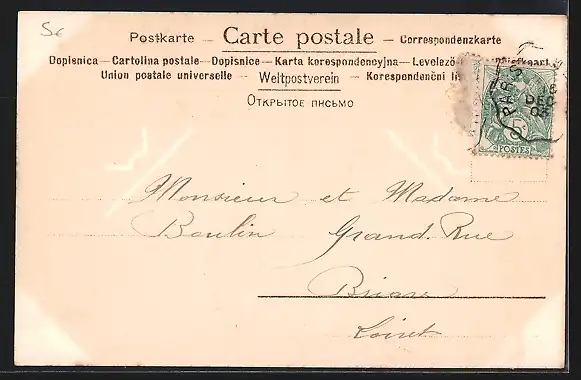 5c
Postkarte — Carte postale — Correspondenzkarte
Dopisnica — Cartolina postale — Dopisnice — Karta korespondencyjna — Levelező
Union postale universelle — Weltpostverein — Korespondenční
Открытое письмо
PARIS
18
DEC
04
5c
POSTES
Monsieur et Madame
Boulin Grand. Rue
Briare
Loiret